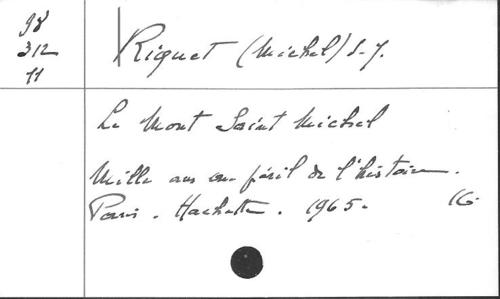 98
312
11
Riquet (Michel) S.J.
Le Mont Saint Michel
Mille ans au péril de l'histoire.
Paris. Hachette. 1965. 16